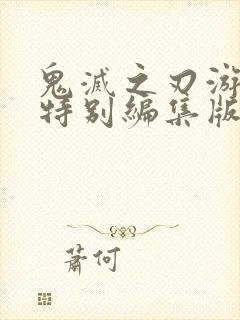 鬼滅之刃游
特別編集版
蕭何